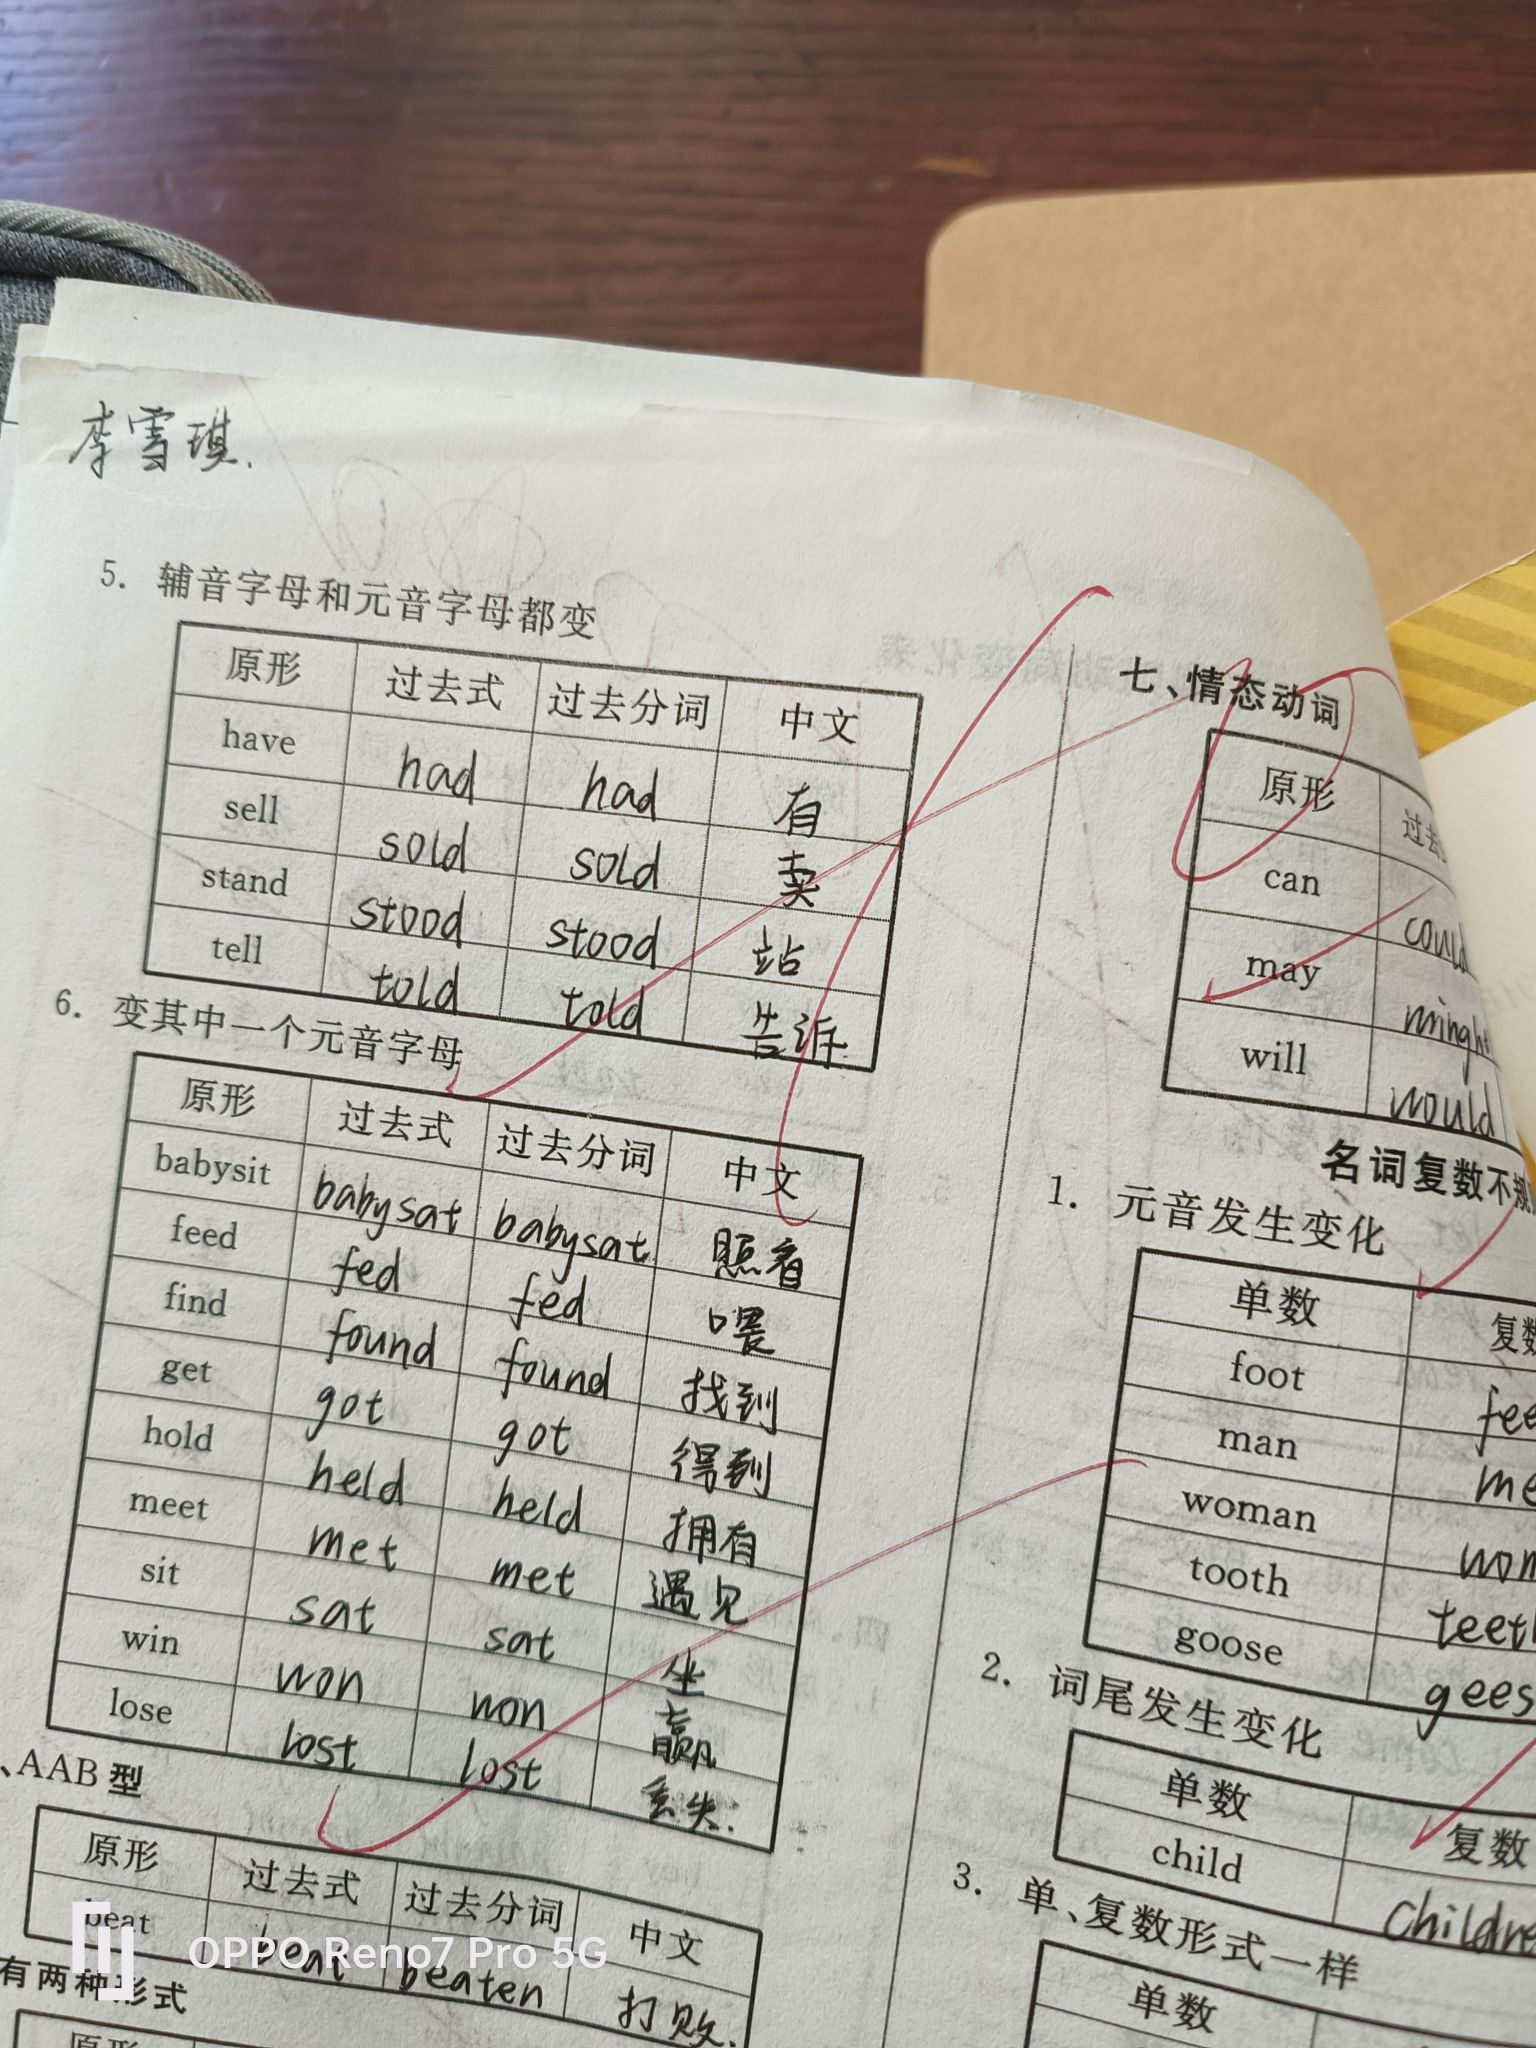 李雪琪.
5. 辅音字母和元音字母都变
原形 过去式 过去分词 中文
have had had 有
sell sold sold 卖
stand stood stood 站
tell told told 告诉.
6. 变其中一个元音字母
原形 过去式 过去分词 中文
babysit babysat babysat. 照看
feed fed fed 喂
find found found 找到
get got got 得到
hold held held 拥有
meet met met 遇见
sit sat sat 坐
win won won 赢
lose lost lost 丢失.
、AAB型
原形 过去式 过去分词 中文
beat beat beaten 打败.
有两种形式
原形
七、情态动词
原形 过去
can could
may mingh
will would
名词复数不规
1. 元音发生变化
单数 复数
foot fee
man me
woman wom
tooth teeth
goose gees
2. 词尾发生变化
单数 复数
child childre
3. 单、复数形式一样
单数
OPPO Reno7 Pro 5G